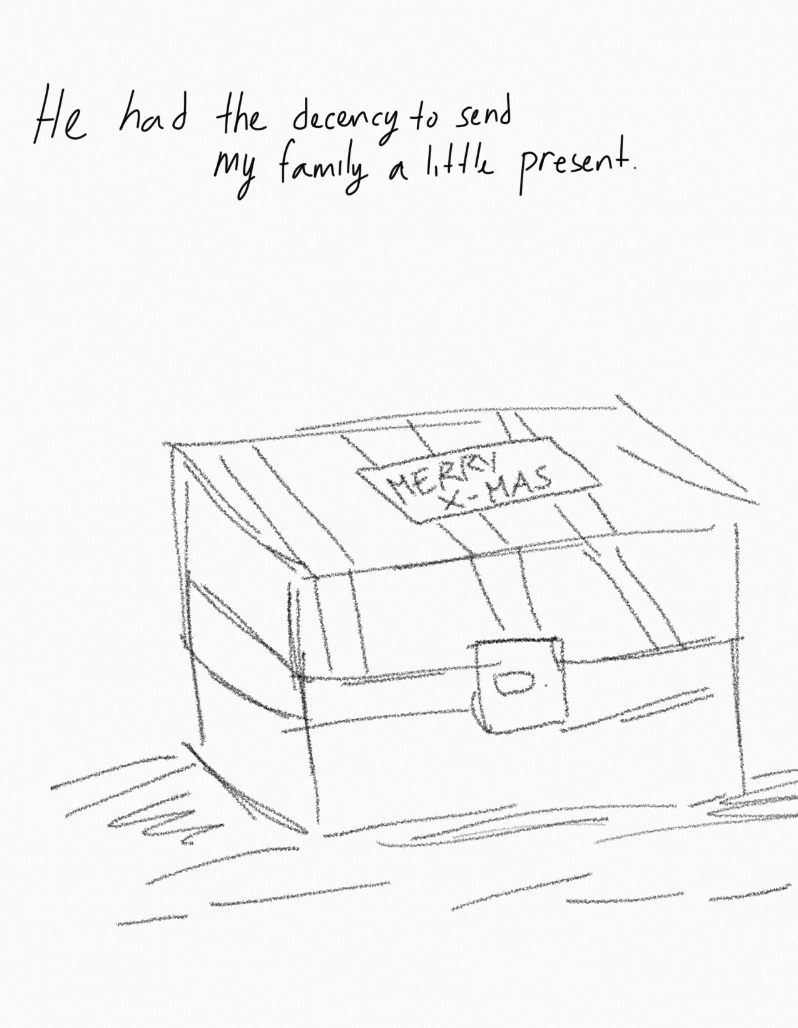 He had the decency to send
my family a little present.
MERRY
X-MAS